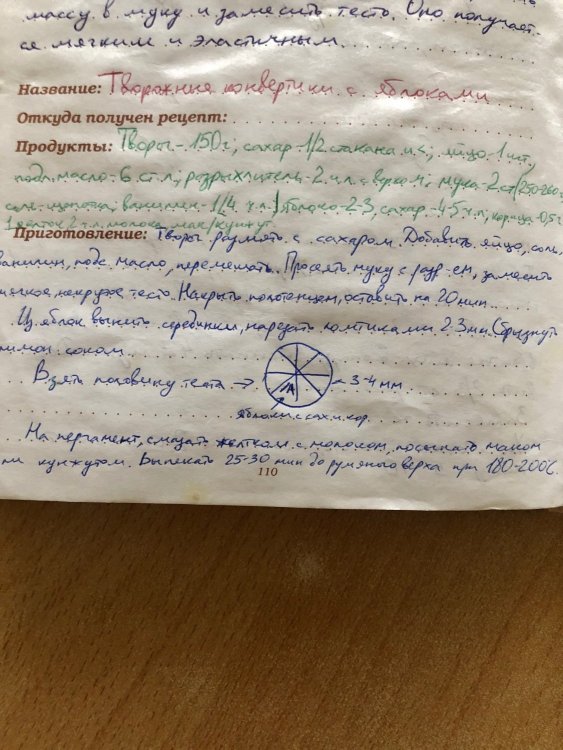 массу в муку и замесить тесто. Оно получает-
ся мягким и эластичным.
Название: Творожные конвертики с яблоками
Откуда получен рецепт:
Продукты: Творог-150г, сахар-1/2 стакана, яйцо-1шт,
подс. масло-6 ст.л; разрыхлитель-2 ч.л. с верхом; мука-2 ст(250-260г),
соль-щепотка; ванилин-1/4 ч.л.) яблоко-2-3, сахар-4-5 ч.л, корица-0,5 ч.
1 желток, 2 ч.л. молока, мак/кунжут
Приготовление: Творог размять с сахаром. Добавить яйцо, соль,
ванилин, подс. масло, перемешать. Просеять муку с разр-ем, замесить
мягкое, некрутое тесто. Накрыть полотенцем, оставить на 20 мин.
Из яблок вынуть серединки, нарезать ломтиками 2-3 мм (брызнуть
лимон. соком.
Взять половину теста → ← 3-4 мм
Яблоки с сах. и кор.
На пергамент, смазать желтком с молоком, посыпать маком
или кунжутом. Выпекать 25-30 мин до румяного верха при 180-200С.
110